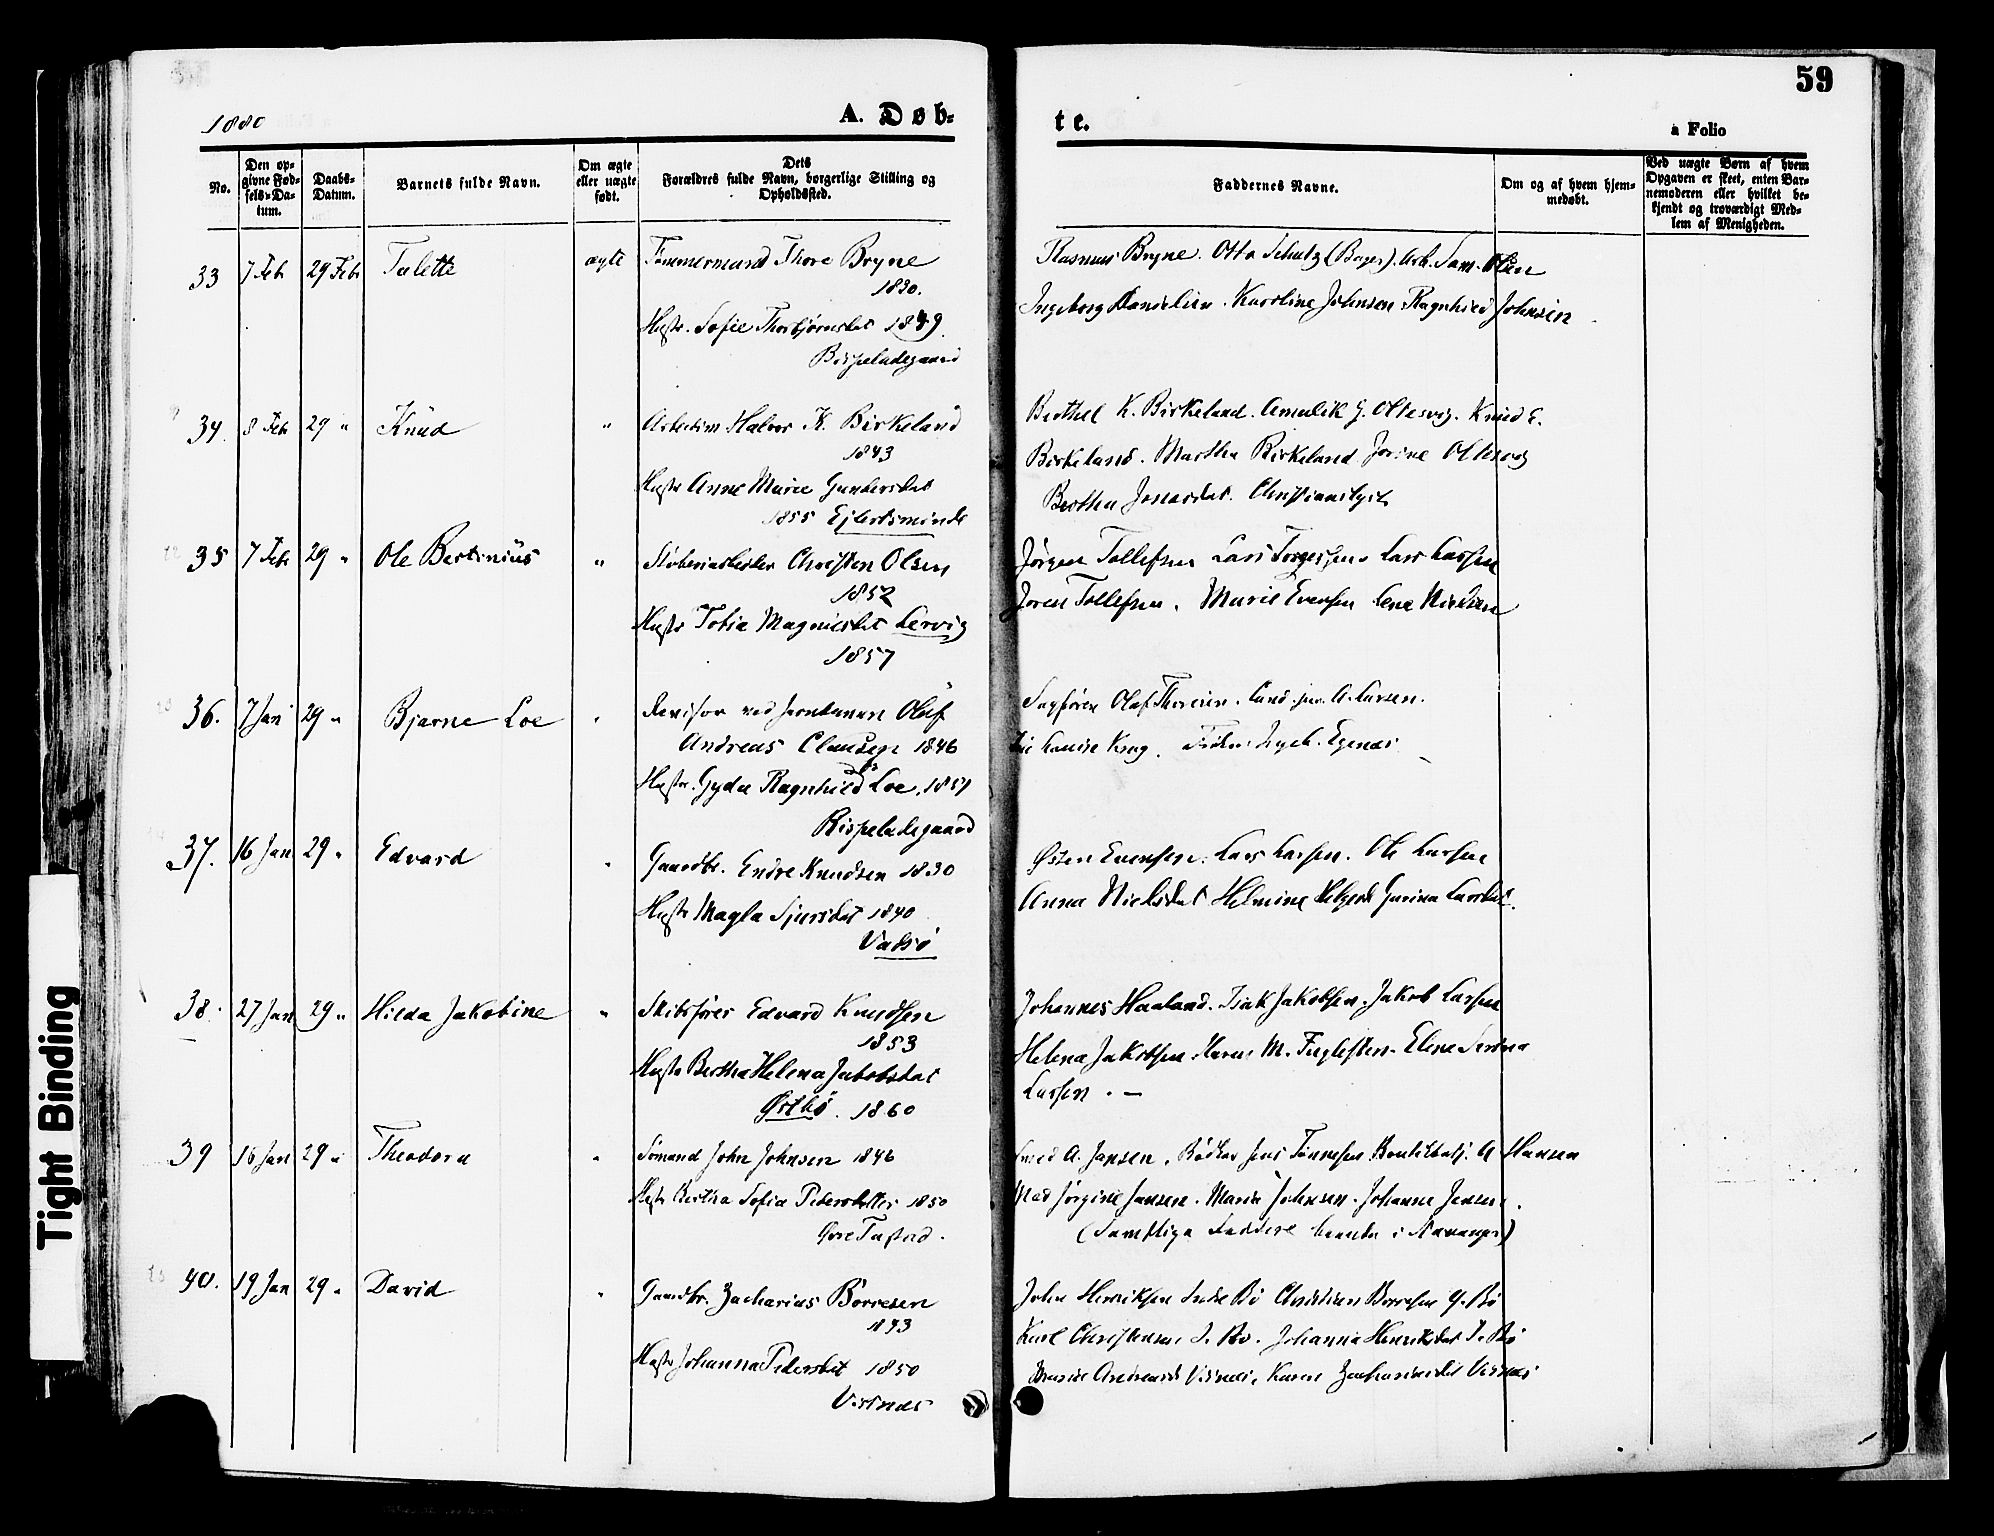 59
1880
A. Døb-
te.
a Folio
No.
Den opgivne Fødsels-Datum.
Daabs-Datum.
Barnets fulde Navn.
Om ægte eller uægte født.
Dets Forældres fulde Navn, borgerlige Stilling og Opholdssted.
Faddernes Navne.
Om og af hvem hjemmedøbt.
Ved uægte Børn af hvem Opgaven er skeet, enten Barnemoderen eller hvilket bekjendt og troværdigt Medlem af Menigheden.
33 7 Feb 29 Febr Talette ægte Tømmermand Thore Bryne
1830.
Hustr. Sofie Thorbjørnsdat 1849.
Bispeladegaard
Rasmus Bryne. Otto Schulz (Bager). Arb. Sam. Olsen
Ingeborg Danielsen. Karoline Johnsen Ragnhild Johnsen
34. 8 Feb 29 " Knud " Arbeidsm Halvor K. Birkeland
1843
Hustr Anne Marie Gundersdat
1855 Ejlertsminde
Berthel K. Birkeland. Amalik G. Oltesvig. Knud E.
Birkeland. Martha Birkeland Jorine Oltesvig
Berthea Jonasdat.
35 7 Feb 29 " Ole Bertinius " Støberiarbeider Christen Olsen
1852
Hustr Tobia Magnusdat Lervig
1857
Jørgen Tollefsen Lars Torgersen. Lars Larsen
Joren Tollefsen. Marie Evensen Lene Nielsen
36. 7 Jan 29 " Bjarne Loe " Revisor ved Jernbanen Oluf
Andreas Clausen 1846
Hustr. Gyda Ragnhild Loe, 1851
Bispeladegaard
Sagfører Olaf Thorsen. Cand. jur. A. Larsen.
Louise Krag. Egenæs
37. 16 Jan 29 " Edvard " Gaardbr. Endre Knudsen 1830
Hustr Magla Sjursdat 1840
Vadsø
Østen Evensen. Lars Larsen. Ole Larsen
Anna Nielsdat Helmine Gurina Larsdat.
38. 27 Jan 29 " Hilda Jakobine " Skibsfører Edvard Knudsen
1853
Hustr Berthe Helena Jakobsdat
Østbø. 1860
Johannes Haaland. Isak Jakobsen. Jakob Larsen
Helena Jakobsen. Karen M. Fuglesten. Elene Serina
Larsen. —
39 16 Jan 29 " Theodora " Sømand John Johnsen 1846
Hustr Bertha Sofia Pedersdatter 1850
Øvre Tasted.
Smed A. Jansen. Bødker Jens Tønnesen A Hansen
Mad Jørgine Jansen. Maria Johnsen. Johanne Jensen.
(Samtlige Faddere i Stavanger)
40. 19 Jan 29 " David " Gaardbr. Zacharias Børresen
1843
Hustr Johanna Pedersdat 1850
Visnæs
John Henriksen Indre Bø Christian Børresen Y. Bø
Karl Christensen I. Bø. Johanna Henriksdat I. Bø
Andreasd Visnæs, Karen Zachariasdat Visnæs
Tight Binding